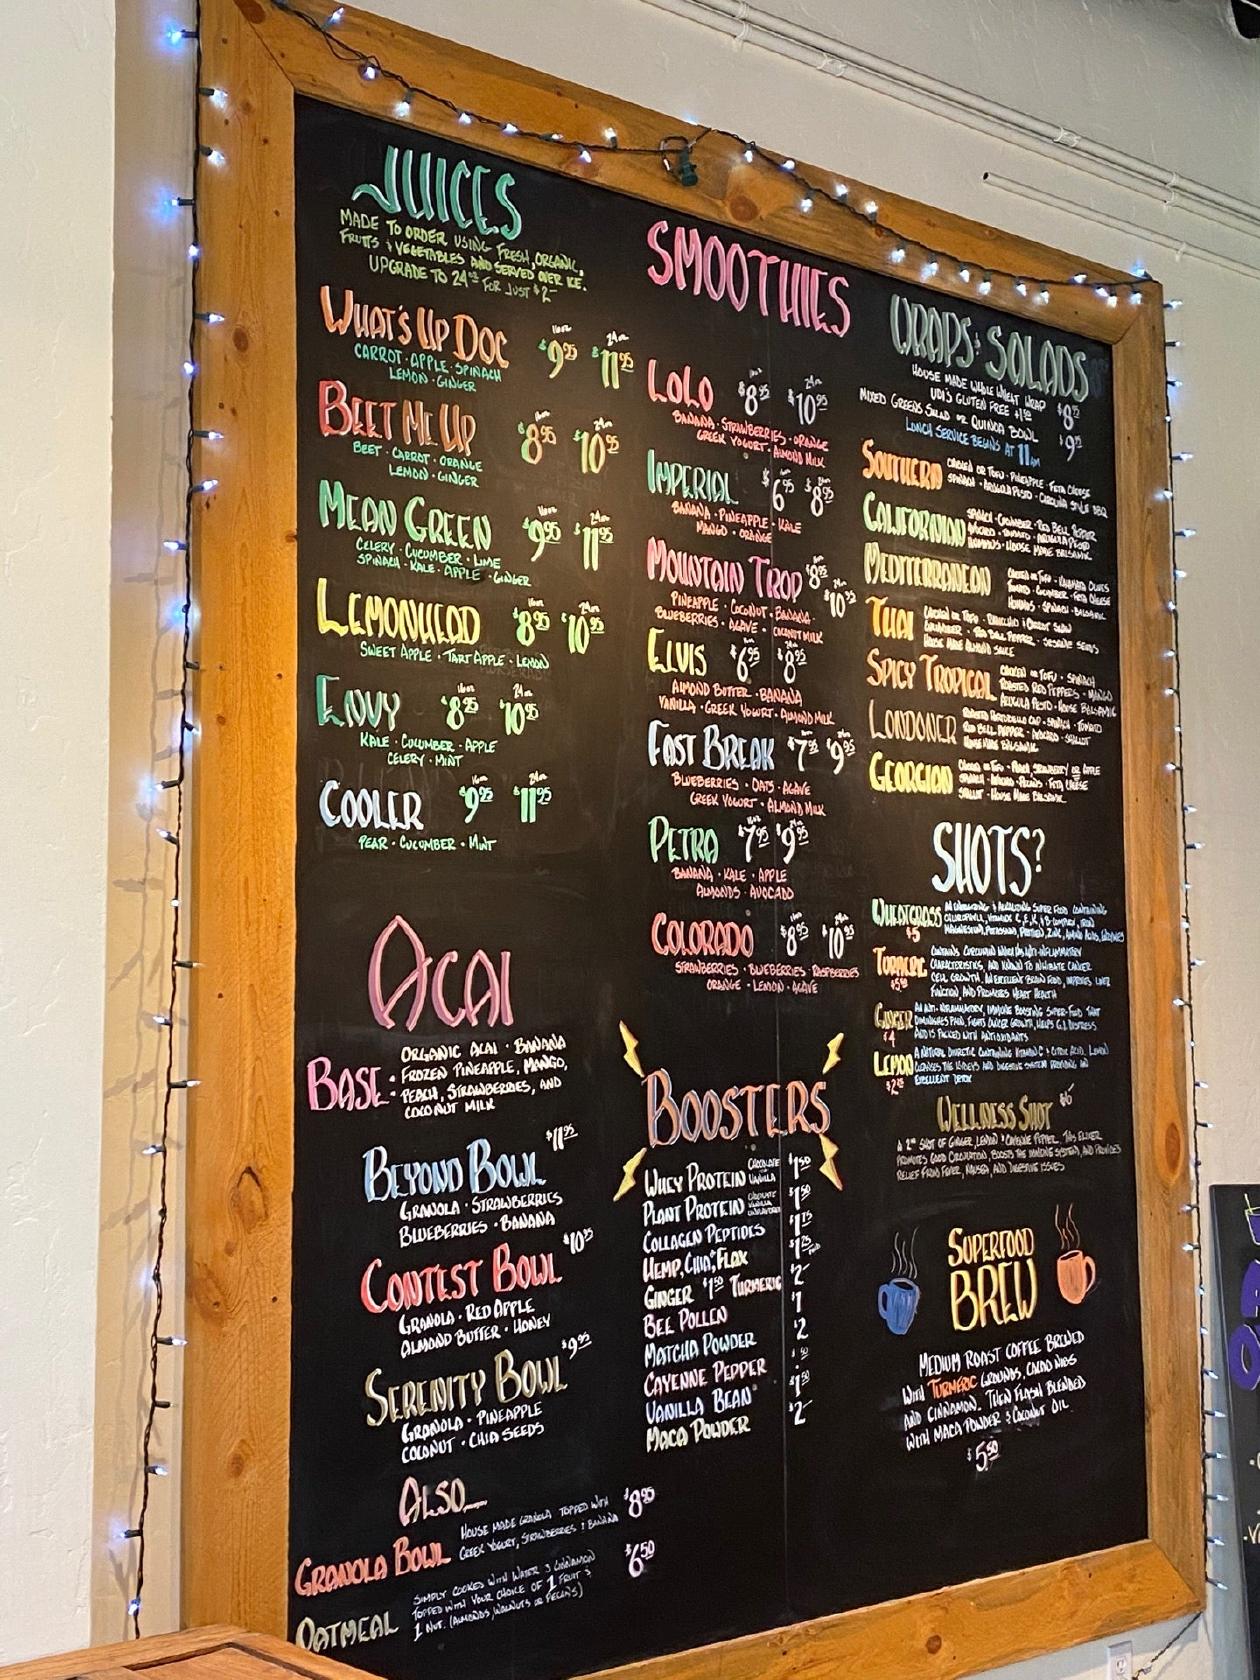 JUICES
MADE TO ORDER USING FRESH, ORGANIC,
FRUITS & VEGETABLES AND SERVED OVER ICE.
UPGRADE TO 24OZ FOR JUST $2-
WHAT'S UP DOC 16oz $9.95 24oz $11.95
CARROT · APPLE · SPINACH
LEMON · GINGER
BEET ME UP 16oz $8.95 24oz $10.95
BEET · CARROT · ORANGE
LEMON · GINGER
MEAN GREEN 16oz $9.95 24oz $11.95
CELERY · CUCUMBER · LIME
SPINACH · KALE · APPLE · GINGER
LEMONHEAD 16oz $8.95 24oz $10.95
SWEET APPLE · TART APPLE · LEMON
ENVY 16oz $8.95 24oz $10.95
KALE · CUCUMBER · APPLE
CELERY · MINT
COOLER 16oz $9.95 24oz $11.95
PEAR · CUCUMBER · MINT
ACAI
BASE:
ORGANIC ACAI · BANANA
FROZEN PINEAPPLE, MANGO,
PEACH, STRAWBERRIES, AND
COCONUT MILK
BEYOND BOWL $11.95
GRANOLA · STRAWBERRIES
BLUEBERRIES · BANANA
CONTEST BOWL $10.95
GRANOLA · RED APPLE
ALMOND BUTTER · HONEY
SERENITY BOWL $9.95
GRANOLA · PINEAPPLE
COCONUT · CHIA SEEDS
ALSO...
GRANOLA BOWL
HOUSE MADE GRANOLA TOPPED WITH
GREEK YOGURT, STRAWBERRIES & BANANA
$8.95
OATMEAL
SIMPLY COOKED WITH WATER & CINNAMON
TOPPED WITH YOUR CHOICE OF 1 FRUIT &
1 NUT. (ALMONDS, WALNUTS OR PECANS)
$6.50
SMOOTHIES
LOLO 16oz $8.95 24oz $10.95
BANANA · STRAWBERRIES · ORANGE
GREEK YOGURT · ALMOND MILK
IMPERIAL $6.95 $8.95
BANANA · PINEAPPLE · KALE
MANGO · ORANGE
MOUNTAIN TROP $8.95 $10.95
PINEAPPLE · COCONUT · BANANA ·
BLUEBERRIES · AGAVE · COCONUT MILK
ELVIS $6.95 $8.95
ALMOND BUTTER · BANANA
VANILLA · GREEK YOGURT · ALMOND MILK
FAST BREAK $7.95 $9.95
BLUEBERRIES · OATS · AGAVE
GREEK YOGURT · ALMOND MILK
PETRA 16oz $7.95 24oz $9.95
BANANA · KALE · APPLE
ALMONDS · AVOCADO
COLORADO 16oz $8.95 24oz $10.95
STRAWBERRIES · BLUEBERRIES · RASPBERRIES
ORANGE · LEMON · AGAVE
BOOSTERS
WHEY PROTEIN CHOCOLATE VANILLA $1.50
PLANT PROTEIN CHOCOLATE VANILLA UNFLAVORED $1.50
COLLAGEN PEPTIDES $1.75
HEMP, CHIA, & FLAX $1.25
GINGER $1.50 TURMERIC $2-
BEE POLLEN $1
MATCHA POWDER $2
CAYENNE PEPPER $.50
VANILLA BEAN $1.50
MACA POWDER $2-
WRAPS & SALADS
HOUSE MADE WHOLE WHEAT WRAP
UDI'S GLUTEN FREE +$1.50
MIXED GREENS SALAD OR QUINOA BOWL
LUNCH SERVICE BEGINS AT 11AM
SOUTHERN
CHICKEN OR TOFU · PINEAPPLE · FETA CHEESE
SPINACH · ARUGULA PESTO · CAROLINA STYLE BBQ
CALIFORNIAN
SPINACH · CUCUMBER · RED BELL PEPPER
AVOCADO · TOMATO · ARUGULA PESTO
HUMMUS · HOUSE MADE BALSAMIC
MEDITERRANEAN
CHICKEN OR TOFU · KALAMATA OLIVES
TOMATO · CUCUMBER · FETA CHEESE
HUMMUS · SPINACH · BALSAMIC
THAI
CHICKEN OR TOFU · CARROT SLAW
CUCUMBER · RED BELL PEPPER · SESAME SEEDS
HOUSE MADE ALMOND SAUCE
SPICY TROPICAL
CHICKEN OR TOFU · SPINACH
ROASTED RED PEPPERS · MANGO
ARUGULA PESTO · HOUSE BALSAMIC
LONDONER
ROASTED PORTOBELLO CAP · SPINACH · TOMATO
RED BELL PEPPER · AVOCADO · SHALLOT
HOUSE MADE BALSAMIC
GEORGIAN
CHICKEN OR TOFU · PEACH, STRAWBERRY OR APPLE
SPINACH · AVOCADO · PECANS · FETA CHEESE
SHALLOT · HOUSE MADE BALSAMIC
SHOTS?
WHEATGRASS $5
AN ENERGIZING & ALKALIZING SUPER FOOD CONTAINING
CHLOROPHYLL, VITAMINS C, E, K, & B-COMPLEX, IRON
MAGNESIUM, POTASSIUM, PROTEIN, ZINC, AMINO ACIDS, ENZYMES
TURMERIC
CONTAINS CURCUMIN WHICH HAS ANTI-INFLAMMATORY
CHARACTERISTICS, AND KNOWN TO INHIBATE CANCER
CELL GROWTH, AN EXCELLENT BRAIN FOOD, IMPROVES LIVER
FUNCTION, AND PROMOTES HEART HEALTH
GINGER $4
AN ANTI-INFLAMMATORY, IMMUNE BOOSTING SUPER-FOOD THAT
DIMINISHES PAIN, FIGHTS CANCER GROWTH, HELPS G.I. DISTRESS
AND IS PACKED WITH ANTIOXIDANTS
LEMON
A NATURAL DIURETIC CONTAINING VITAMIN C & CITRIC ACID, LEMON
CLEANSES THE KIDNEYS AND DIGESTIVE SYSTEM PROVIDING AN
EXCELLENT DETOX
WELLNESS SHOT $6
A 2oz SHOT OF GINGER, LEMON & CAYENNE PEPPER. THIS ELIXIR
PROMOTES GOOD CIRCULATION, BOOSTS THE IMMUNE SYSTEM, AND PROVIDES
RELIEF FROM FEVER, NAUSEA, AND DIGESTIVE ISSUES
SUPERFOOD
BREW
MEDIUM ROAST COFFEE BREWED
WITH TURMERIC GROUNDS, CACAO NIBS
AND CINNAMON. THEN FLASH BLENDED
WITH MACA POWDER & COCONUT OIL
$5.50